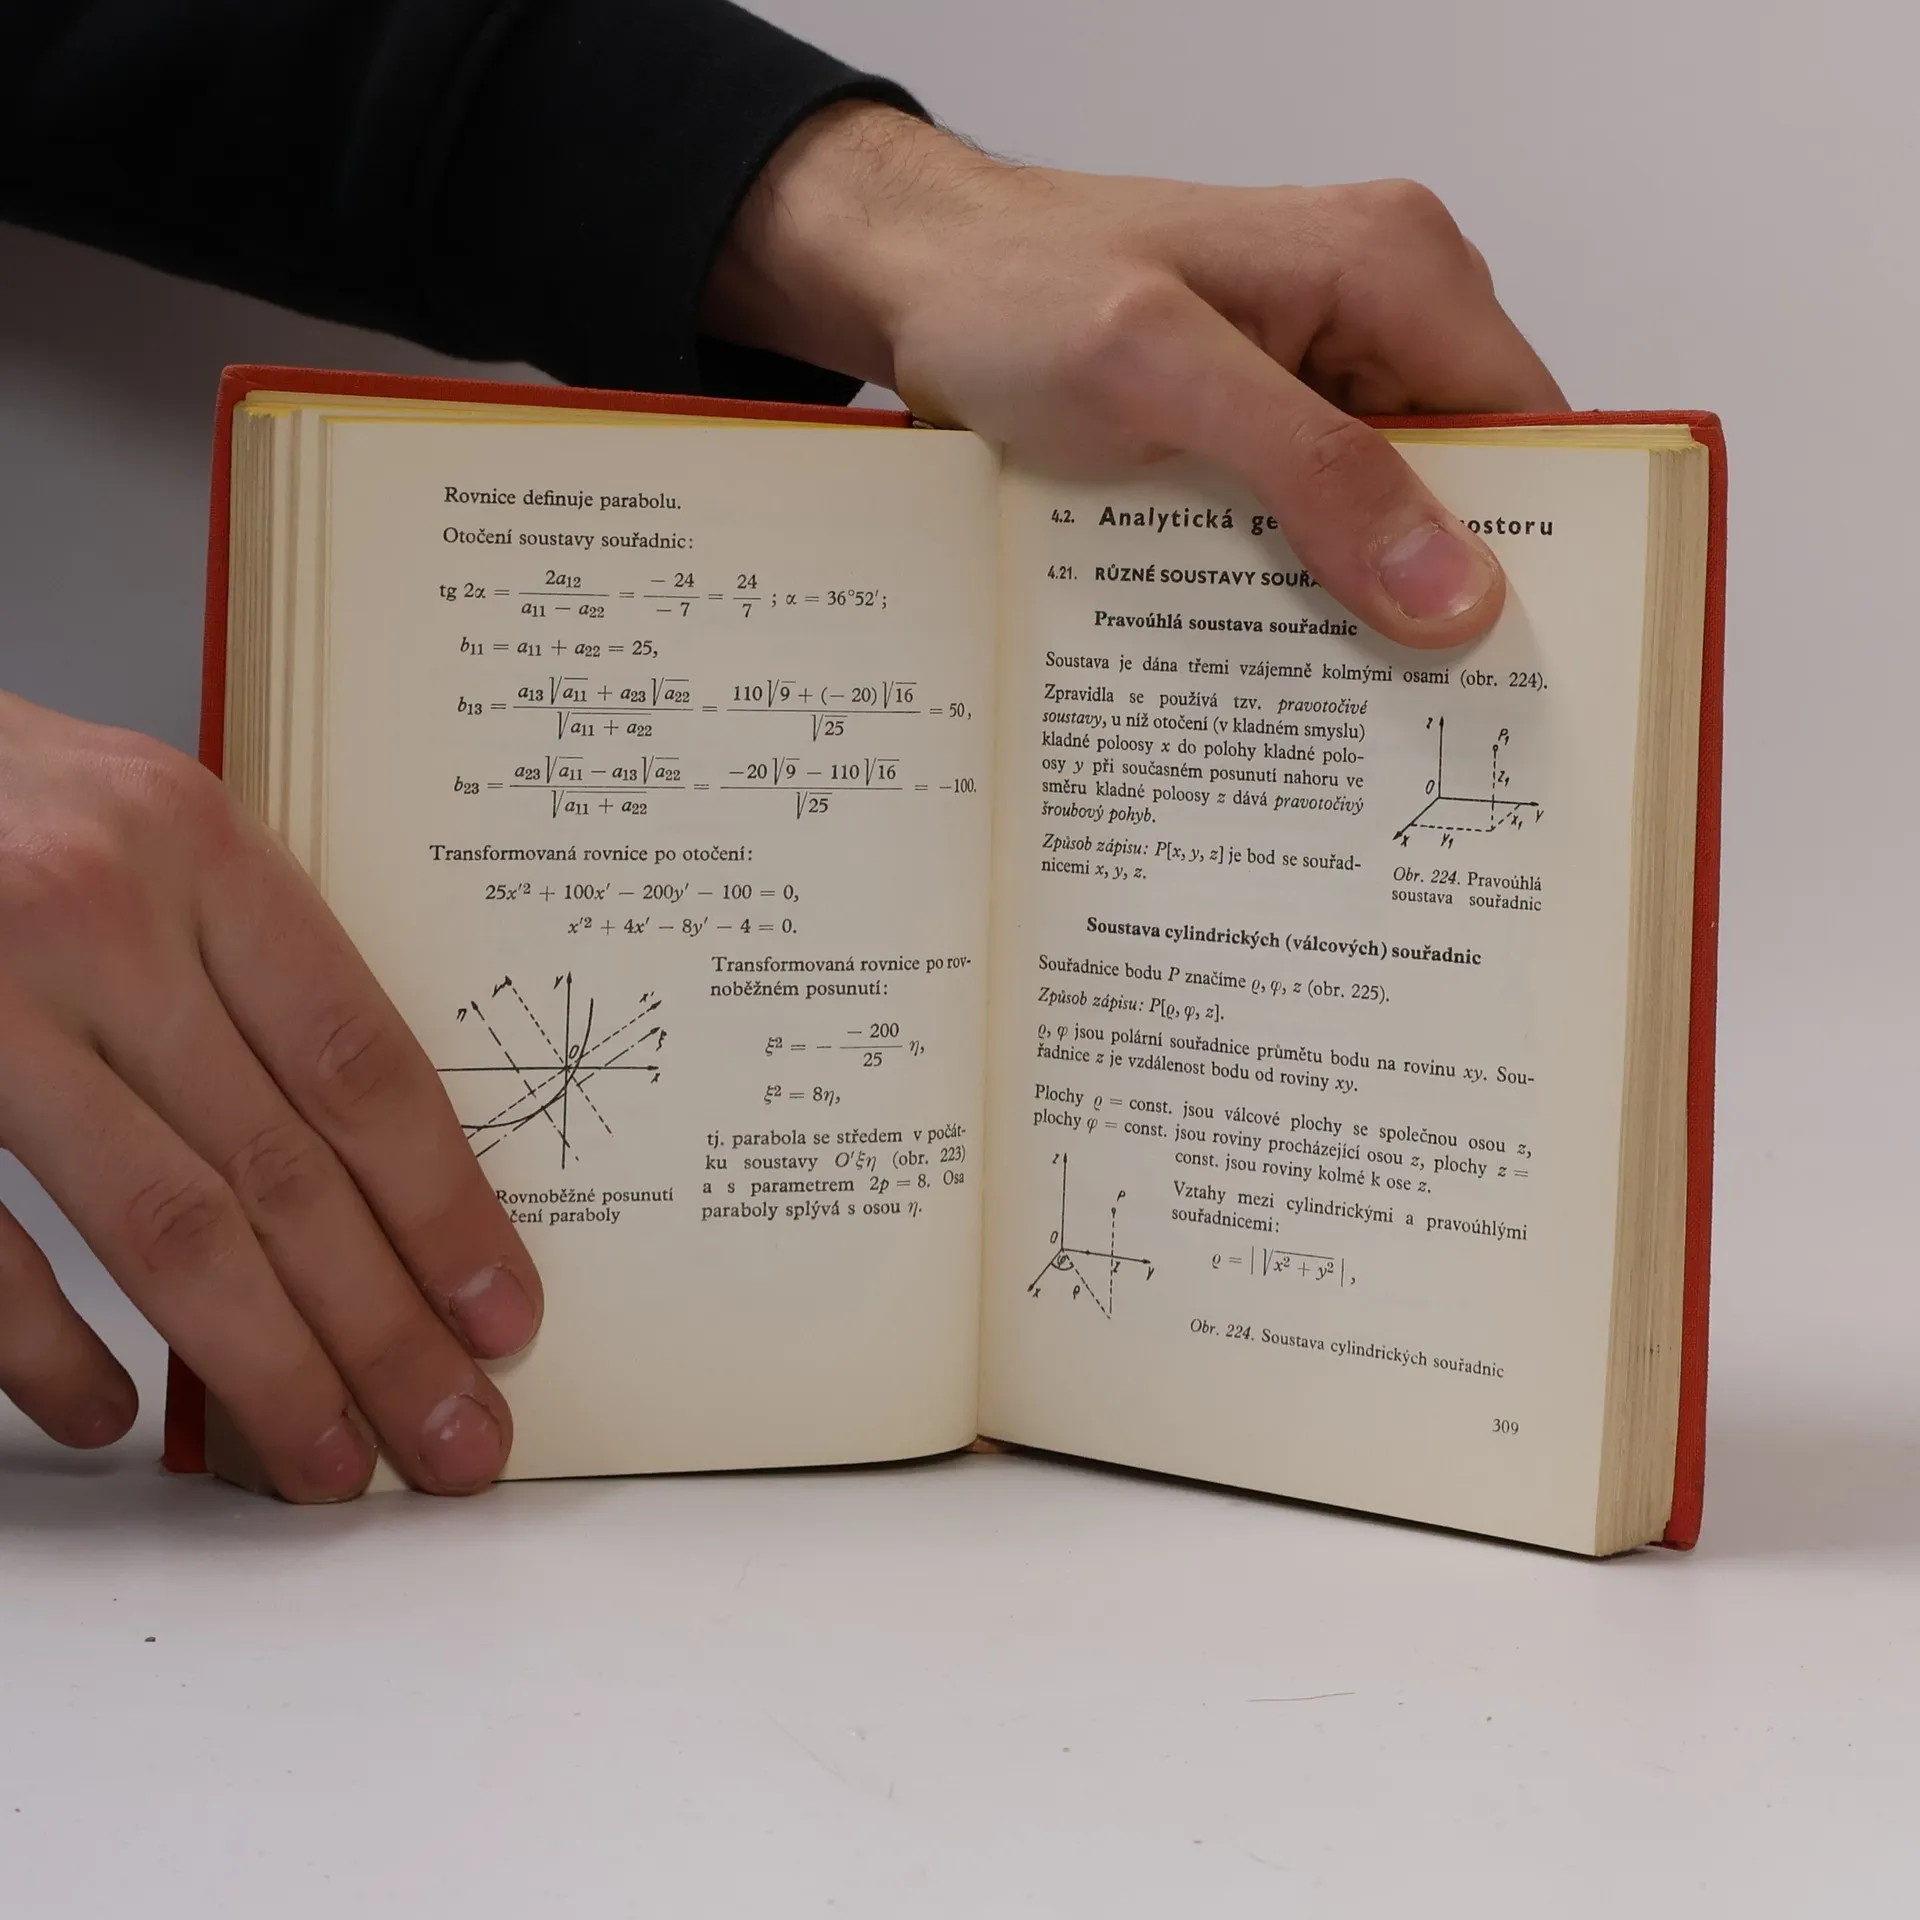 Rovnice definuje parabolu.
Otočení soustavy souřadnic:
tg 2α = 2a12 / (a11 − a22) = − 24 / − 7 = 24 / 7 ; α = 36°52′;
b11 = a11 + a22 = 25,
b13 = (a13 √a11 + a23 √a22) / √(a11 + a22) = (110 √9 + (− 20) √16) / √25 = 50,
b23 = (a23 √a11 − a13 √a22) / √(a11 + a22) = (−20 √9 − 110 √16) / √25 = −100.
Transformovaná rovnice po otočení:
25x′2 + 100x′ − 200y′ − 100 = 0,
x′2 + 4x′ − 8y′ − 4 = 0.
Transformovaná rovnice po rov-
noběžném posunutí:
ξ2 = − (− 200 / 25) η,
ξ2 = 8η,
tj. parabola se středem v počát-
ku soustavy O′ξη (obr. 223)
a s parametrem 2p = 8. Osa
paraboly splývá s osou η.
η y x′ ξ O x
Rovnoběžné posunutí
paraboly
4.2. Analytická
4.21. RŮZNÉ SOUSTAVY
Pravoúhlá soustava souřadnic
Soustava je dána třemi vzájemně kolmými osami (obr. 224).
Zpravidla se používá tzv. pravotočivé
soustavy, u níž otočení (v kladném smyslu)
kladné poloosy x do polohy kladné polo-
osy y při současném posunutí nahoru ve
směru kladné poloosy z dává pravotočivý
šroubový pohyb.
Způsob zápisu: P[x, y, z] je bod se souřad-
nicemi x, y, z.
z P1 z1 O y x1 x y1
Obr. 224. Pravoúhlá
soustava souřadnic
Soustava cylindrických (válcových) souřadnic
Souřadnice bodu P značíme ϱ, φ, z (obr. 225).
Způsob zápisu: P[ϱ, φ, z].
ϱ, φ jsou polární souřadnice průmětu bodu na rovinu xy. Sou-
řadnice z je vzdálenost bodu od roviny xy.
Plochy ϱ = const. jsou válcové plochy se společnou osou z,
plochy φ = const. jsou roviny procházející osou z, plochy z =
const. jsou roviny kolmé k ose z.
Vztahy mezi cylindrickými a pravoúhlými
souřadnicemi:
ϱ = | √(x2 + y2) | ,
z P O φ z y x ρ
Obr. 224. Soustava cylindrických souřadnic
309